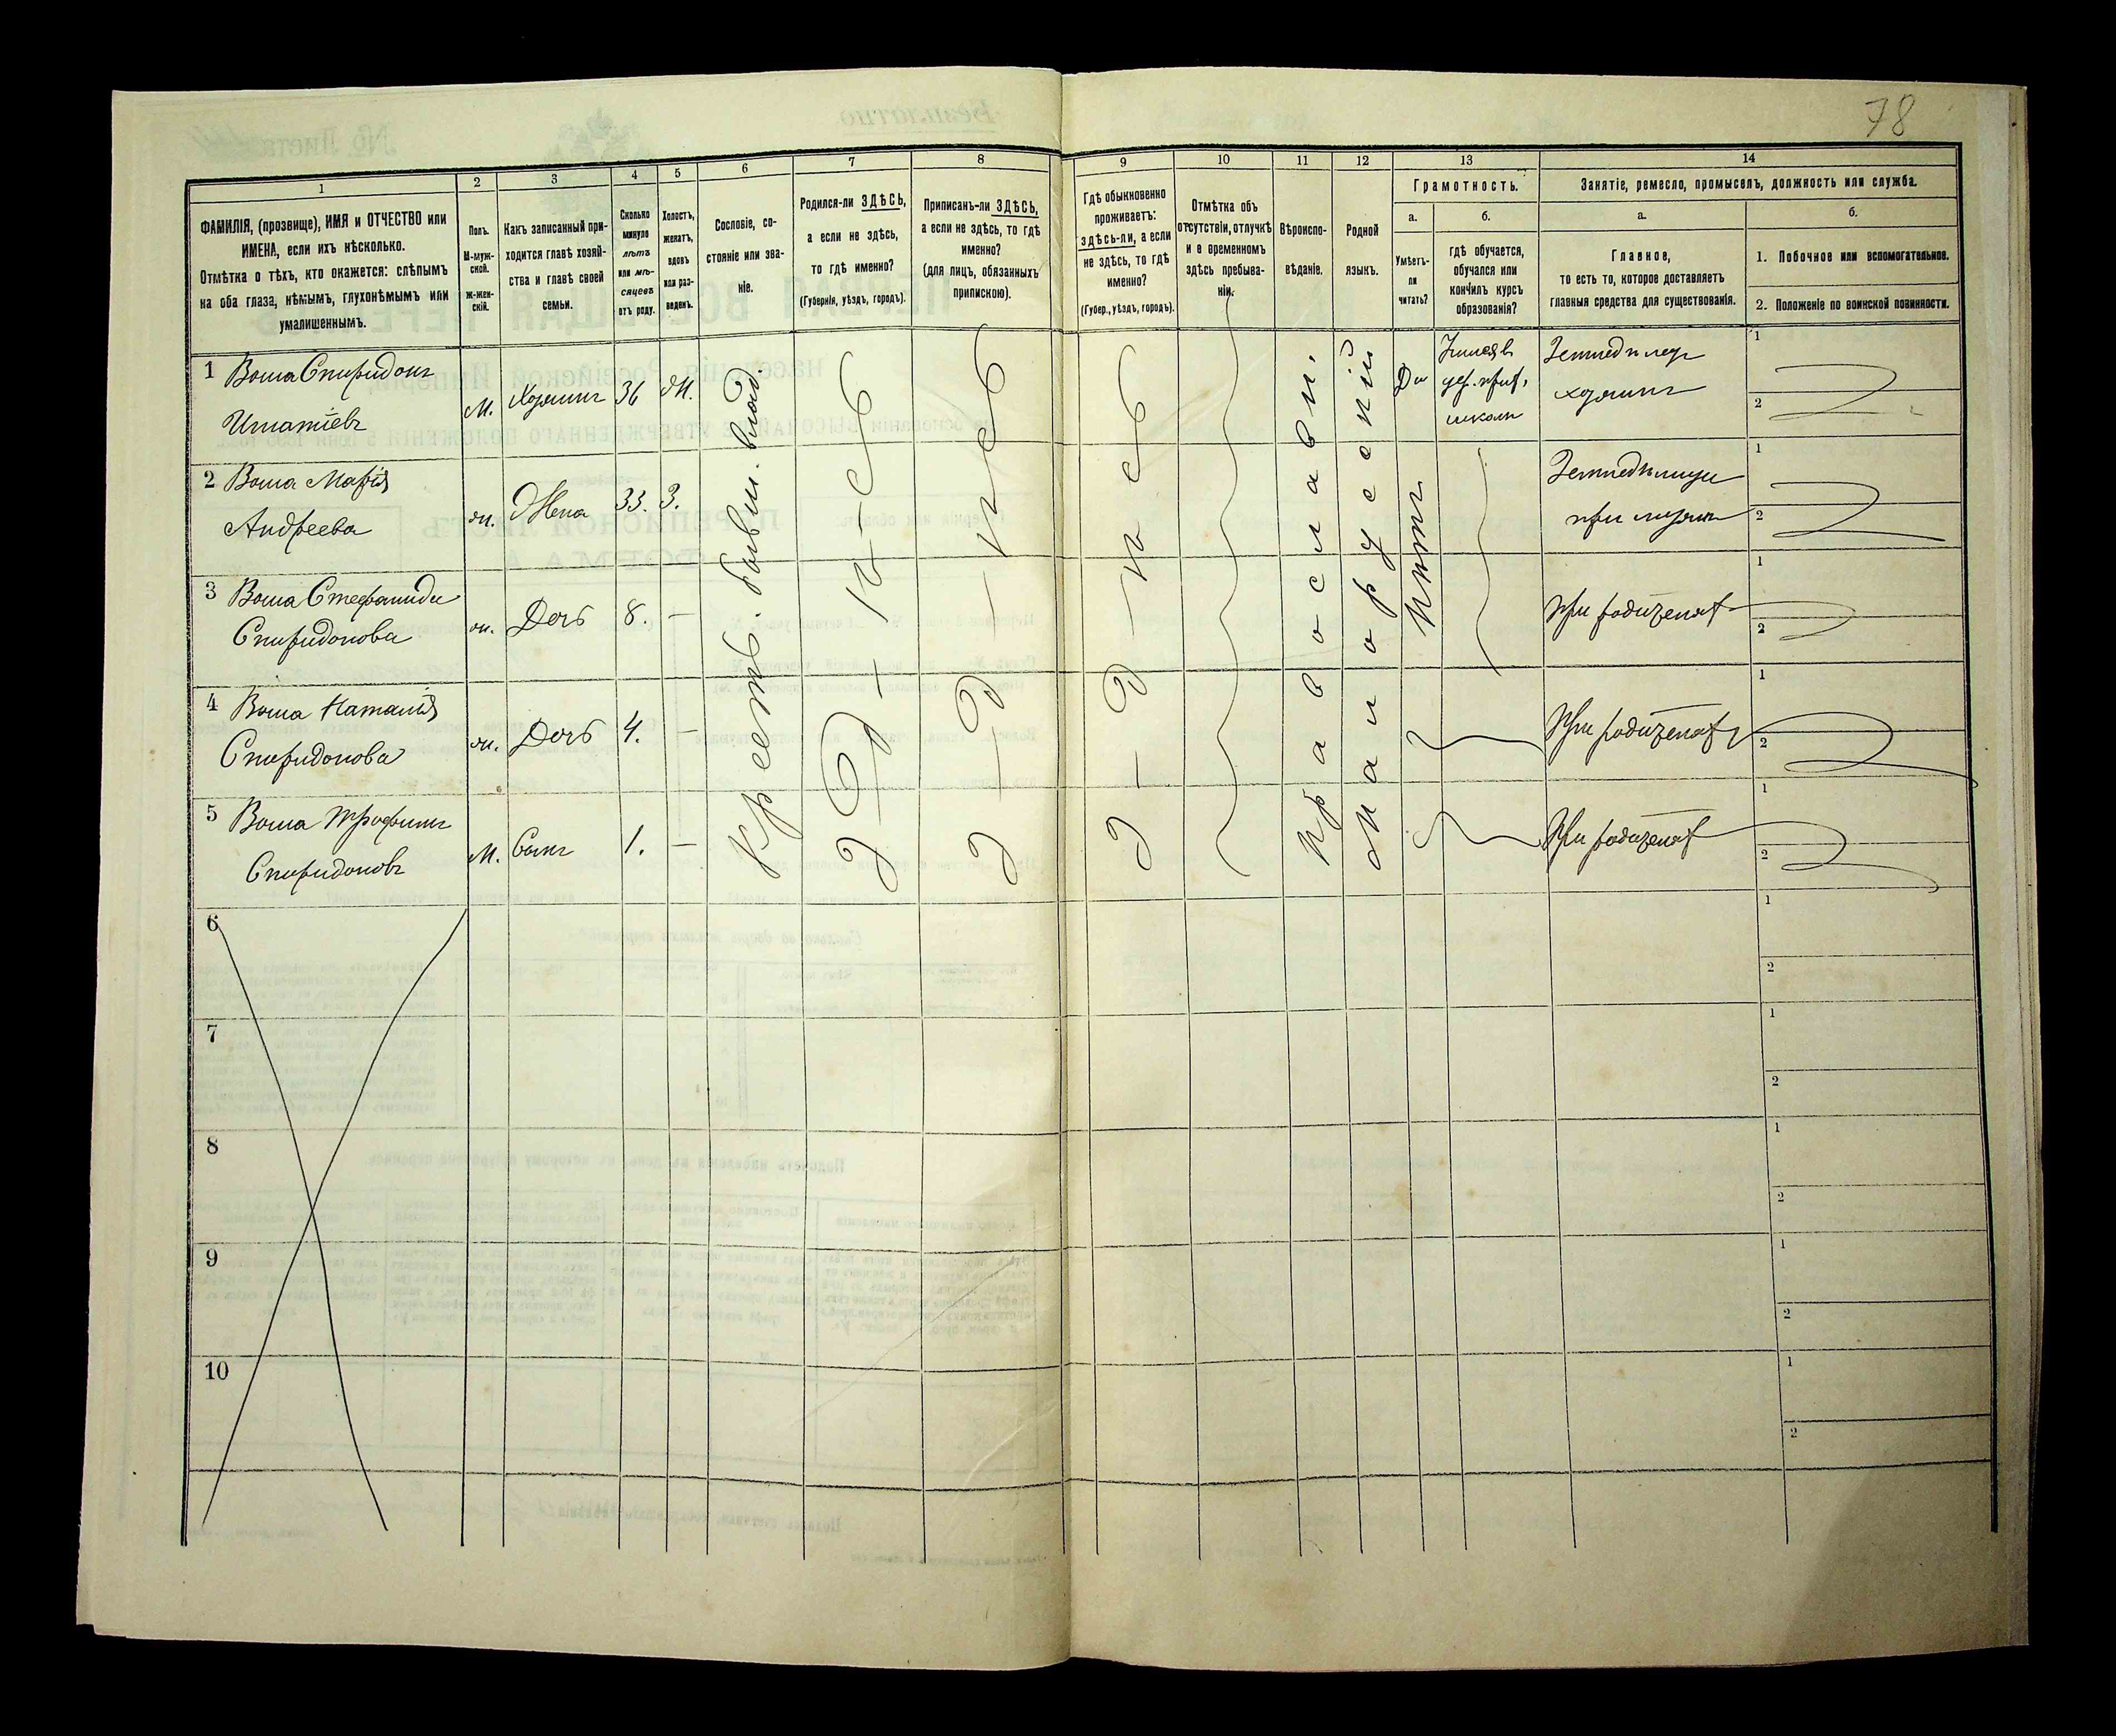 78
1
2
3
4
5
6
7
8
9
10
11
12
13
14
ФАМИЛІЯ, (прозвище), ИМЯ и ОТЧЕСТВО или
ИМЕНА, если ихъ нѣсколько.
Отмѣтка о тѣхъ, кто окажется: слѣпымъ
на оба глаза, нѣмымъ, глухонѣмымъ или
умалишеннымъ.
Полъ.
М-муж-
ской.
Ж-жен-
скій.
Какъ записанный при-
ходится главѣ хозяй-
ства и главѣ своей
семьи.
Сколько
минуло
лѣтъ
или мѣ-
сяцевъ
отъ роду.
Холостъ,
женатъ,
вдовъ
или раз-
веденъ.
Сословіе, со-
стояніе или зва-
ніе.
Родился-ли ЗДѢСЬ,
а если не здѣсь,
то гдѣ именно?
(Губернія, уѣздъ, городъ).
Приписанъ-ли ЗДѢСЬ,
а если не здѣсь, то гдѣ
именно?
(для лицъ, обязанныхъ
припискою).
Гдѣ обыкновенно
проживаетъ:
здѣсь-ли, а если
не здѣсь, то гдѣ
именно?
(Губер., уѣздъ, городъ).
Отмѣтка объ
отсутствіи, отлучкѣ
и о временномъ
здѣсь пребыва-
ніи.
Вѣроиспо-
вѣданіе.
Родной
языкъ.
Грамотность.
а.
Умѣетъ-
ли
читать?
б.
гдѣ обучается,
обучался или
кончилъ курсъ
образованія?
Занятіе, ремесло, промыселъ, должность или служба.
а.
Главное,
то есть то, которое доставляетъ
главныя средства для существованія.
б.
1. Побочное или вспомогательное.
2. Положеніе по воинской повинности.
1 Воша Спиридонъ
Игнатіевъ
М. Хозяинъ 36 Ж.
Да
школы
Земледѣлецъ
хозяинъ
1
2
2 Воша Марія
Андреева
ж. Жена 33. З.
при
1
2
3 Воша Стефанида
Спиридонова
ж. Дочь 8. —
При родителях
1
2
4 Воша Наталія
Спиридонова
ж. Дочь 4. —
При родителях
1
2
5 Воша Трофимъ
Спиридоновъ
М. Сынъ 1. —
При родителях
1
2
Крестъ.
Здѣсь
Здѣсь
Здѣсь
Православн.
Малорусскій
Нѣтъ
6
1
2
7
1
2
8
1
2
9
1
2
10
1
2